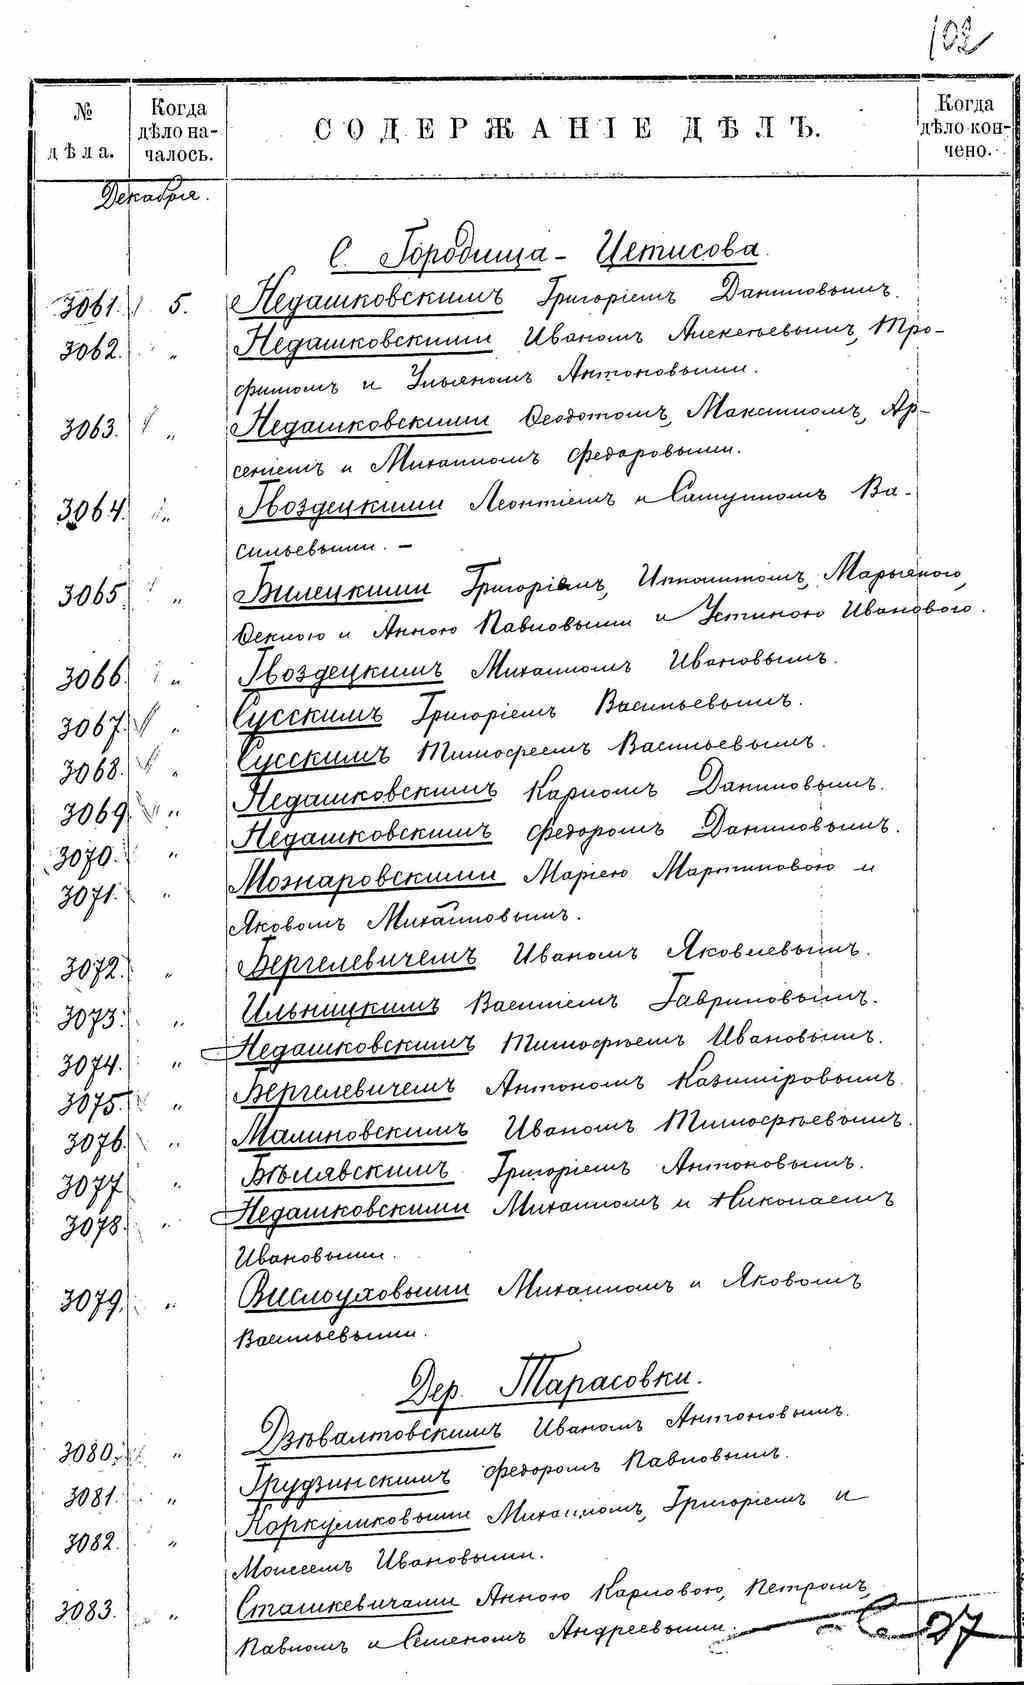 102
№ дѣла.
Когда дѣло на-
чалось.
СОДЕРЖАНІЕ ДѢЛЪ.
Когда дѣло кон-
чено.
Декабря.
С. Городища - Цетисова.
3061. 5. Недашковскимъ Григоріемъ Даниловымъ.
3062. " Недашковскими Иваномъ Алексѣевымъ, Тро-
фимомъ и Ульяномъ Антоновыми.
3063. " Недашковскими Ѳеодотомъ, Максимомъ, Ар-
сеніемъ и Михаиломъ Федоровыми.
3064. " Гвоздецкими Леонтіемъ и Самуиломъ Ва-
сильевыми. -
3065. " Билецкими Григоріемъ, Ипполитомъ, Марьяною,
Ѳеклою и Анною Павловыми и Устиною Ивановою.
3066. " Гвоздецкимъ Михаиломъ Ивановымъ.
3067. " Сусскимъ Григоріемъ Васильевымъ.
3068. " Сусскимъ Тимофеемъ Васильевымъ.
3069. " Недашковскимъ Карпомъ Даниловымъ.
3070. " Недашковскимъ Федоромъ Даниловымъ.
3071. " Мознаровскими Маріею Мартиновою и
Яковомъ Михайловымъ.
3072. " Бергелевичемъ Иваномъ Яковлевымъ.
3073. " Ильницкимъ Василіемъ Гавриловымъ.
3074. " Недашковскимъ Тимофѣемъ Ивановымъ.
3075. " Бергелевичемъ Антономъ Казиміровымъ.
3076. " Малиновскимъ Иваномъ Тимофѣевымъ.
3077 " Бѣлявскимъ Григоріемъ Антоновымъ.
3078. " Недашковскими Михаиломъ и Николаемъ
Ивановыми.
3079. " Вислоуховыми Михаиломъ и Яковомъ
Васильевыми.
Дер. Тарасовки.
3080. " Дзѣвалтовскимъ Иваномъ Антоновымъ.
3081. " Грудзинскимъ Федоромъ Павловымъ.
3082. " Коркуликовыми Михаиломъ, Григоріемъ и
Моисеемъ Ивановыми.
3083. " Сташкевичами Анною Карповою, Петромъ,
Павломъ и Семеномъ Андреевыми.
27